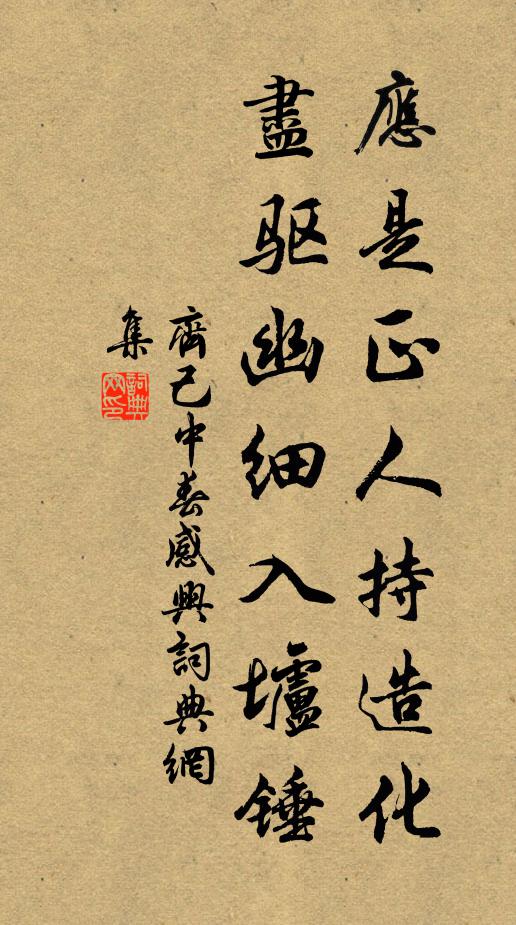 應是正人持造化
盡驱幽细入壚锤
齊己中春感興詞典網
集
詞典
网印